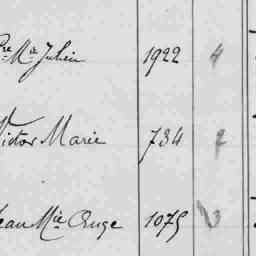 Pre Mie Julien 1922 4
Victor Marie 734 2
Jean Mie Ange 1075 3